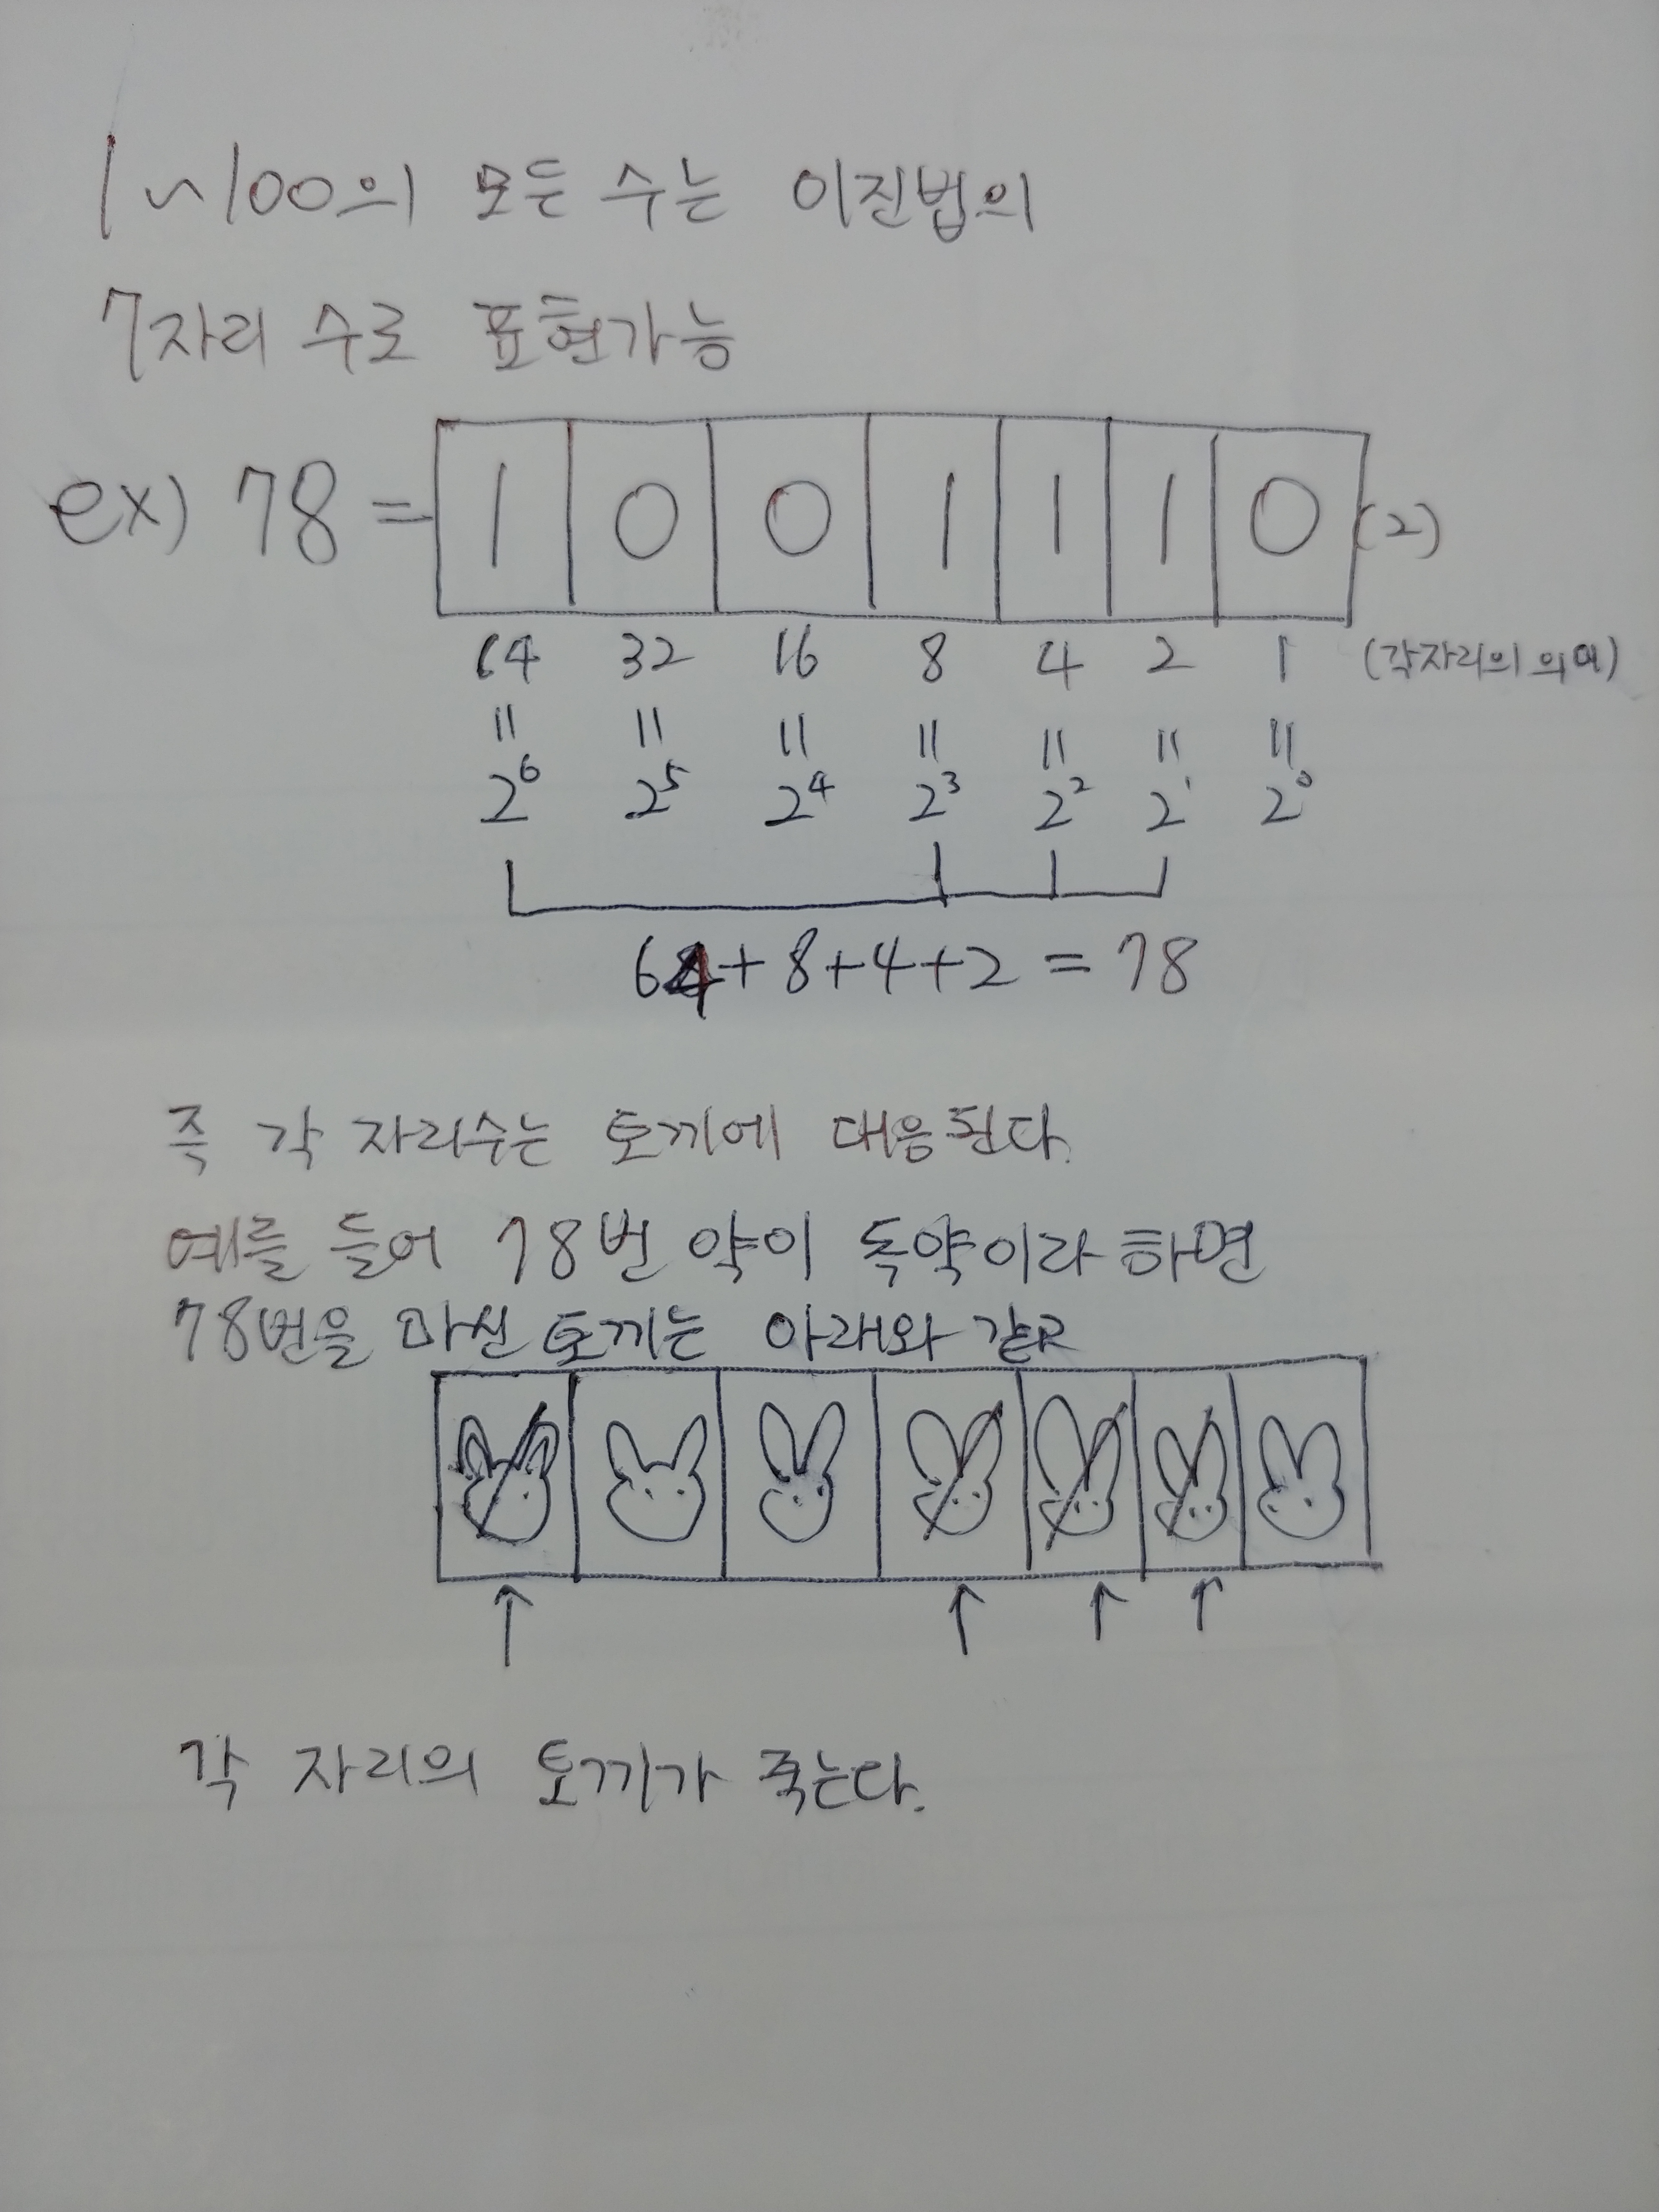 1~100의 모든 수는 이진법의
7자리 수로 표현가능
ex) 78 = 1 0 0 1 1 1 0 (2)
64 32 16 8 4 2 1 (각자리의 의미)
= = = = = = =
2⁶ 2⁵ 2⁴ 2³ 2² 2¹ 2⁰
64+8+4+2 = 78
즉 각 자리수는 토끼에 대응된다.
예를 들어 78번 약이 독약이라 하면
78번을 마신 토끼는 아래와 같고
↑ ↑ ↑ ↑
각 자리의 토끼가 죽는다.